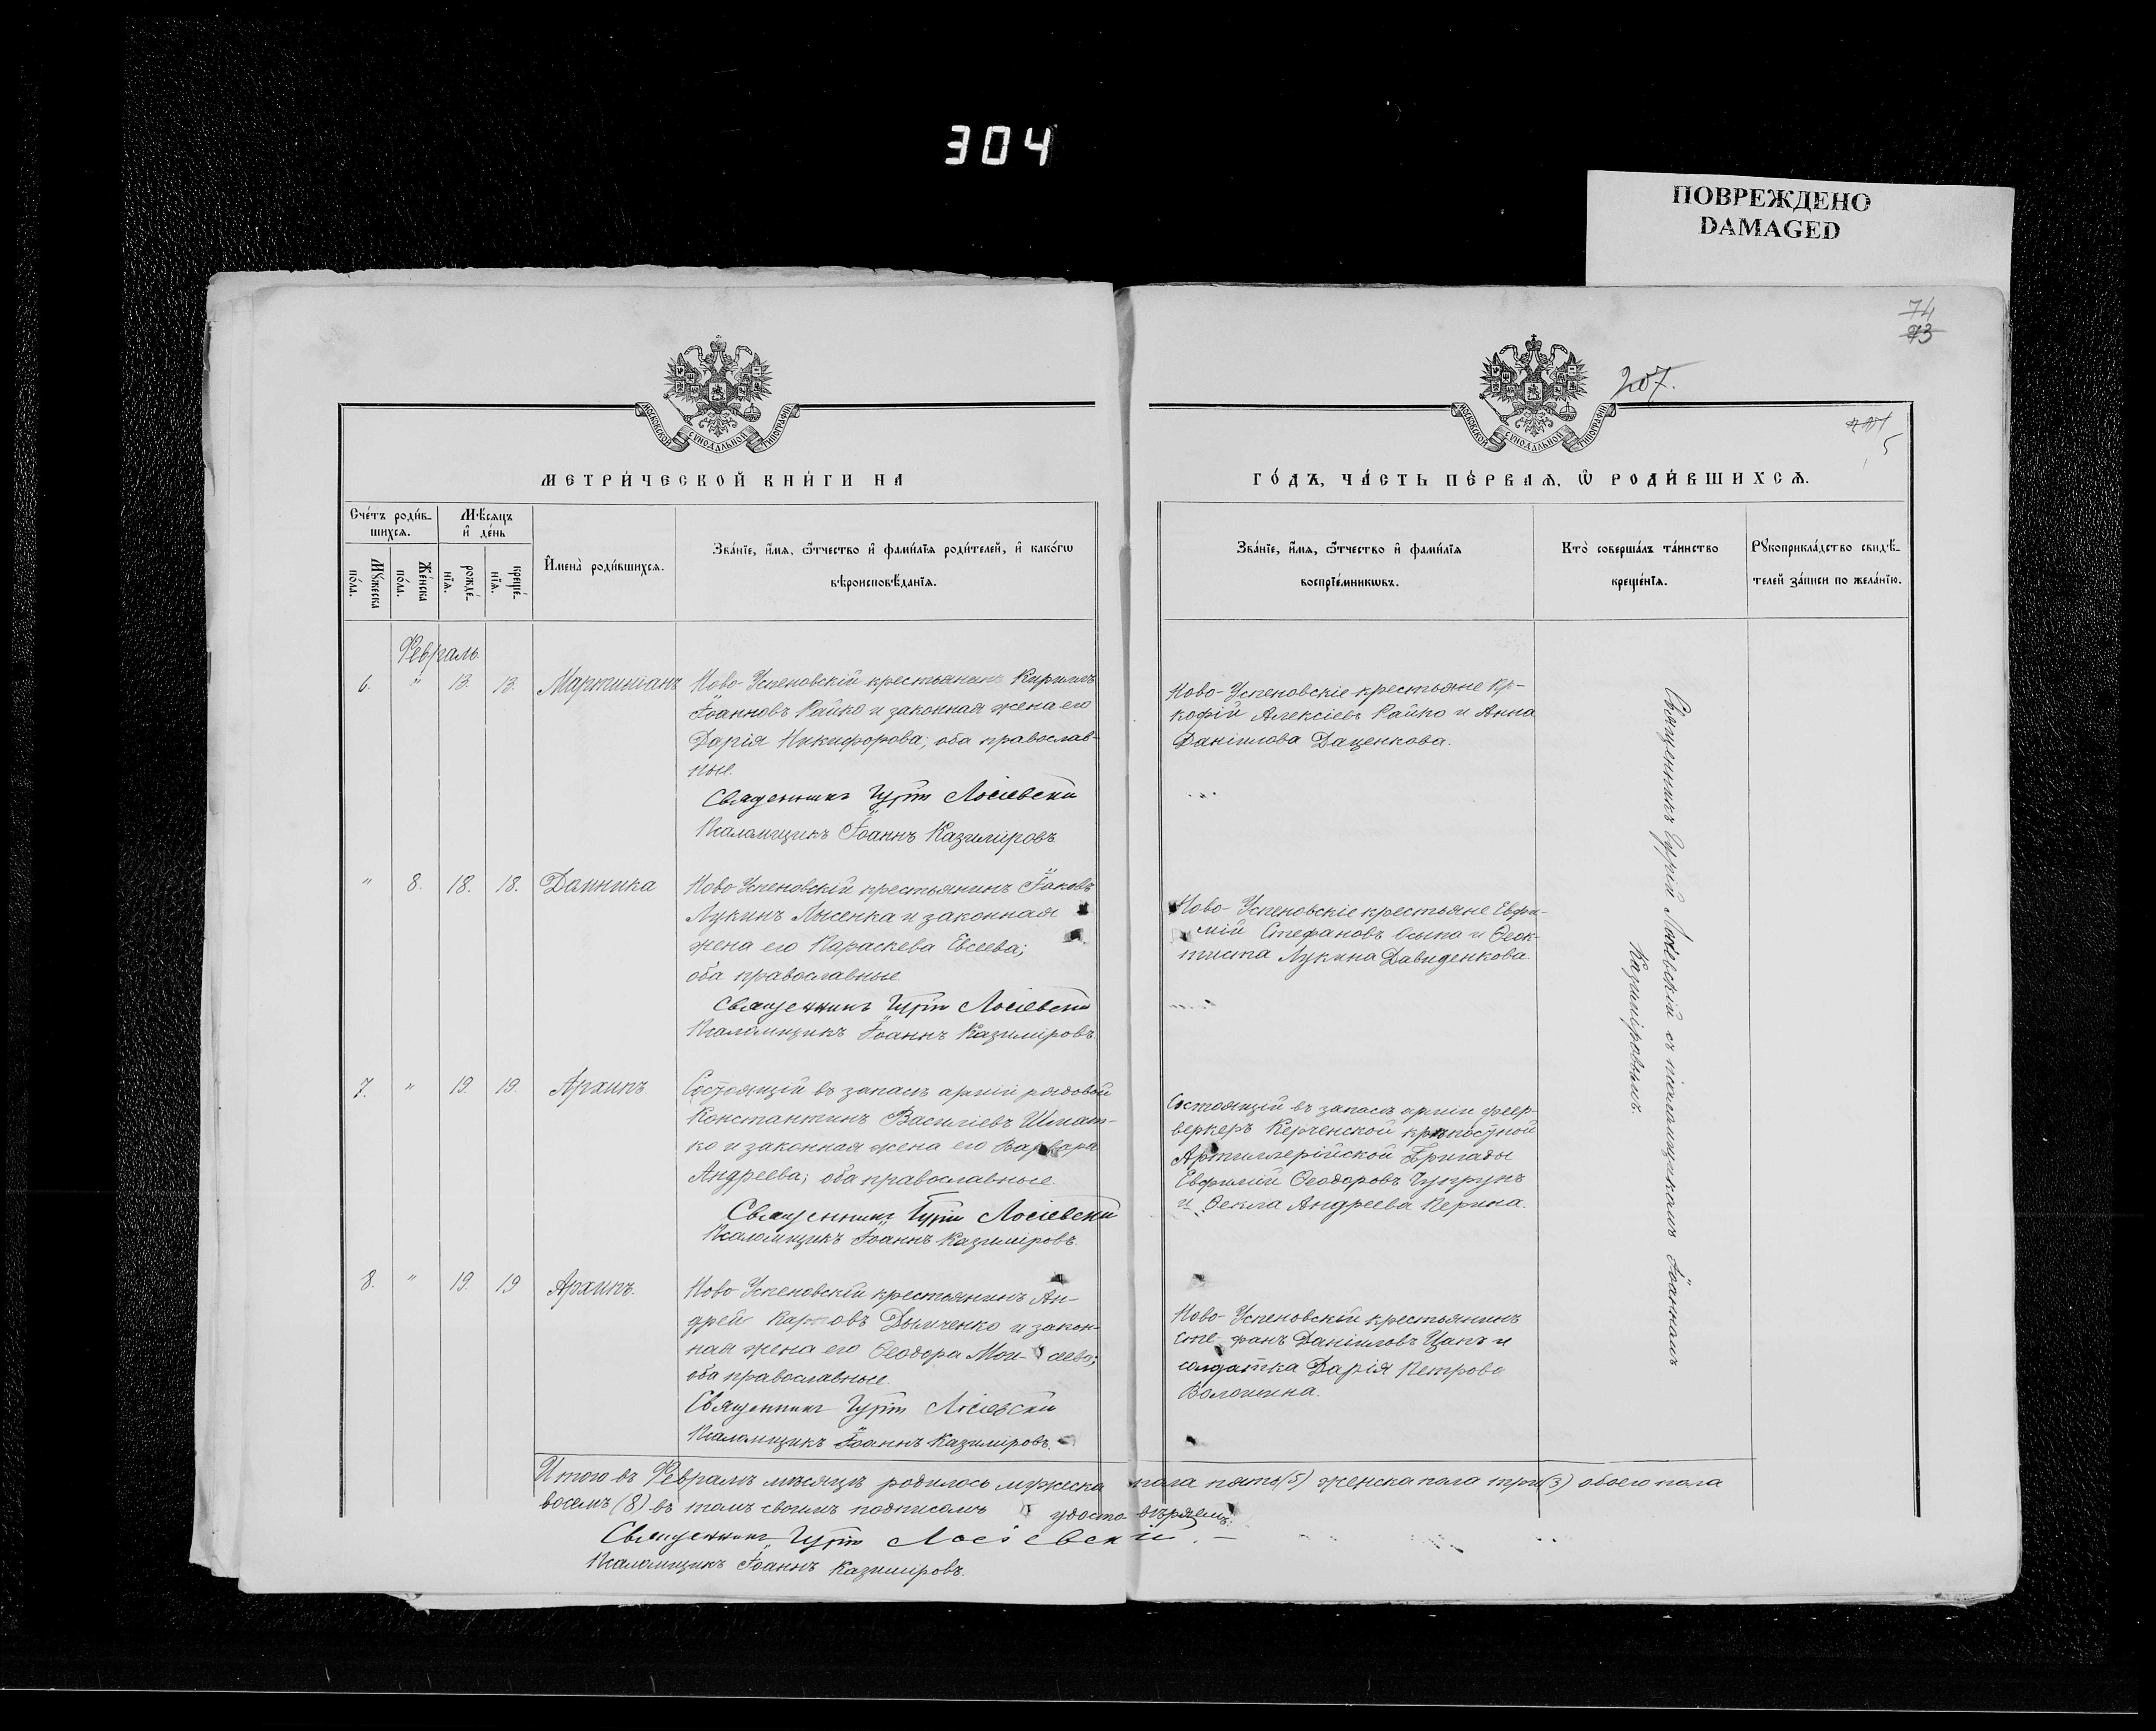 304
ПОВРЕЖДЕНО
DAMAGED
74
93
207.
5
МОСКОВСКОЙ СѴНОДАЛЬНОЙ ТИПОГРАФІИ
МОСКОВСКОЙ СѴНОДАЛЬНОЙ ТИПОГРАФІИ
МЕТРИ́ЧЕСКОЙ КНИ́ГИ НА
ГО́ДЪ, ЧА́СТЬ ПЕ́РВАѦ, Ѡ҆ РОДИ́ВШИХСѦ.
Сче́тъ роди́в-
шихсѧ.
Мѣ́сѧцъ
и҆ де́нь
Му́жеска
по́ла.
Же́нска
по́ла.
рожде́-
нїѧ.
креще́-
нїѧ.
И҆мена̀ роди́вшихсѧ.
Зва́нїе, и҆́мѧ, ѻ҆́тчество и҆ фами́лїѧ роди́телей, и҆ како́гѡ
вѣроисповѣ́данїѧ.
Зва́нїе, и҆́мѧ, ѻ҆́тчество и҆ фами́лїѧ
воспрїе́мникѡвъ.
Кто̀ соверша́лъ та́инство
креще́нїѧ.
Рꙋкоприкла́дство свидѣ́-
телей за́писи по жела́нїю.
Февраль.
6. " 13. 13. Мартиніанъ
Ново-Успеновскій крестьянинъ Кириллъ
Іоанновъ Райко и законная жена его
Дарія Никифорова; оба православ-
ные.
Священникъ Гурій Лосіевскій
Псаломщикъ Іоаннъ Казиміровъ
Ново-Успеновскіе крестьяне
кофій Алексіевъ Райко и Анна
Даніилова Даценкова.
" 8. 18. 18. Домника
Ново-Успеновскій крестьянинъ Іаковъ
Лукинъ Лысенка и законная
жена его Параскева Евсеева;
оба православные
Священникъ Гурій Лосіевскій
Псаломщикъ Іоаннъ Казиміровъ.
Ново-Успеновскіе крестьяне Евфи-
мій Стефановъ и Ѳеок-
тиста Лукина Давиденкова.
7. " 19. 19 Архипъ.
Состоящій въ запасѣ арміи рядовой
Константинъ Василіевъ Шмат-
ко и законная жена его Варвара
Андреева; оба православные.
Священникъ Гурій Лосіевскій
Псаломщикъ Іоаннъ Казиміровъ.
Состоящій въ запасѣ арміи феер-
веркеръ Керченской крѣпостной
Артиллерійской Бригады
Евфимій Ѳеодоровъ Чупрунъ
и Ѳекла Андреева Перина.
8. " 19. 19 Архипъ.
Ново-Успеновскій крестьянинъ Ан-
дрей Карповъ Дымченко и закон-
ная жена его Ѳеодора Мои-сеева;
оба православные.
Священникъ Гурій Лосіевскій
Псаломщикъ Іоаннъ Казиміровъ.
Ново-Успеновскій крестьянинъ
Сте-фанъ Даніиловъ Цапъ и
солдатка Дарія Петрова
Волошина.
Священникъ Гурій Лосіевскій съ псаломщикомъ Іоанномъ
Казиміровымъ.
Итого въ Февралѣ мѣсяцѣ родилось мужеска пола пять (5) женска пола три (3) обоего пола
восемь (8) въ томъ своимъ подписомъ удосто-вѣряемъ:
Священникъ Гурій Лосіевскій.
Псаломщикъ Іоаннъ Казиміровъ.